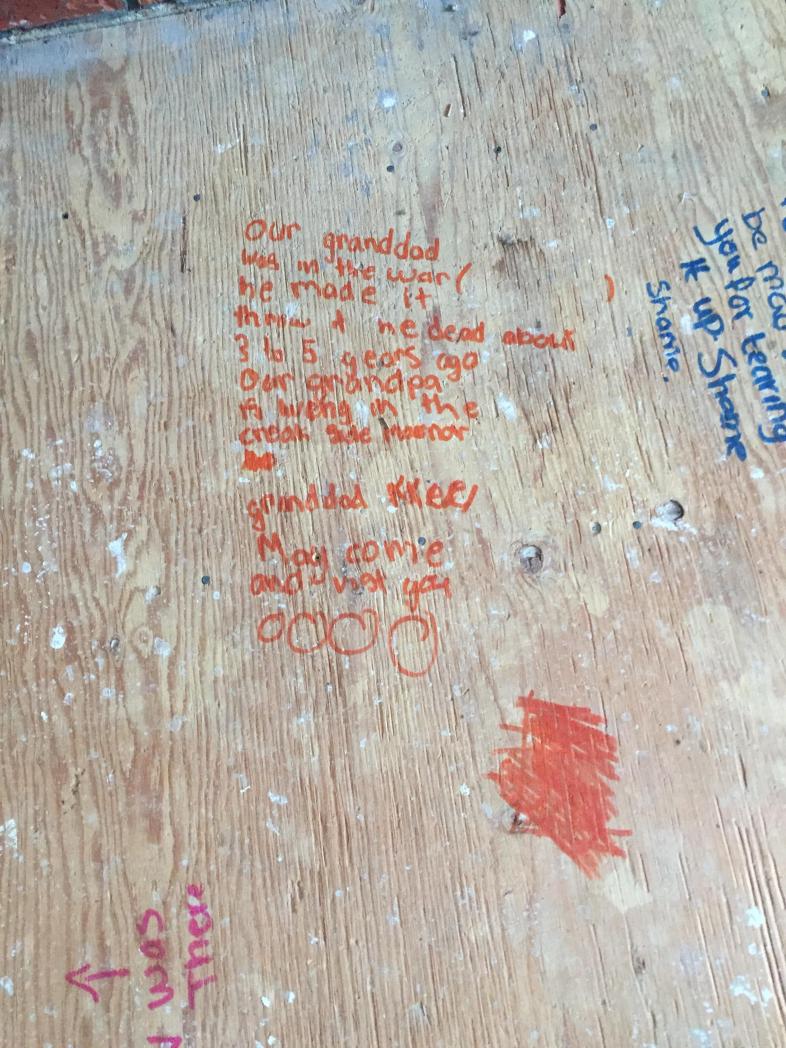 Our granddad
was in the war ( )
he made it
throw & he dead about
3 to 5 years ago
Our grandpa
is living in the
creak side manor
granddad
May come
and visit you
be
you for tearing
it up Shame
Shame.
was
There